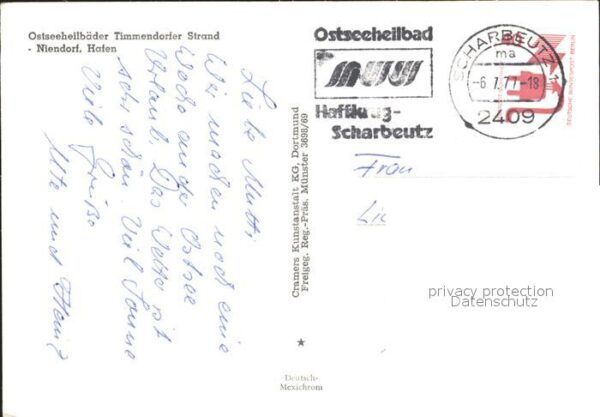 Ostseeheilbäder Timmendorfer Strand
- Niendorf, Hafen
Liebe Mutti
Wir machen noch eine
Woche an der Ostsee
Urlaub. Das Wetter ist
sehr schön. Viel Sonne
Viele Grüße
Ute und Heinz
Cramers Kunstanstalt KG, Dortmund
Freigeg. Reg.-Präs. Münster 3698/69
Deutsch-
Mexichrom
Ostseeheilbad
Haffkrug-
Scharbeutz
SCHARBEUTZ 1
ma
-6.7.77-18
2409
DEUTSCHE BUNDESPOST BERLIN
Frau
privacy protection
Datenschutz